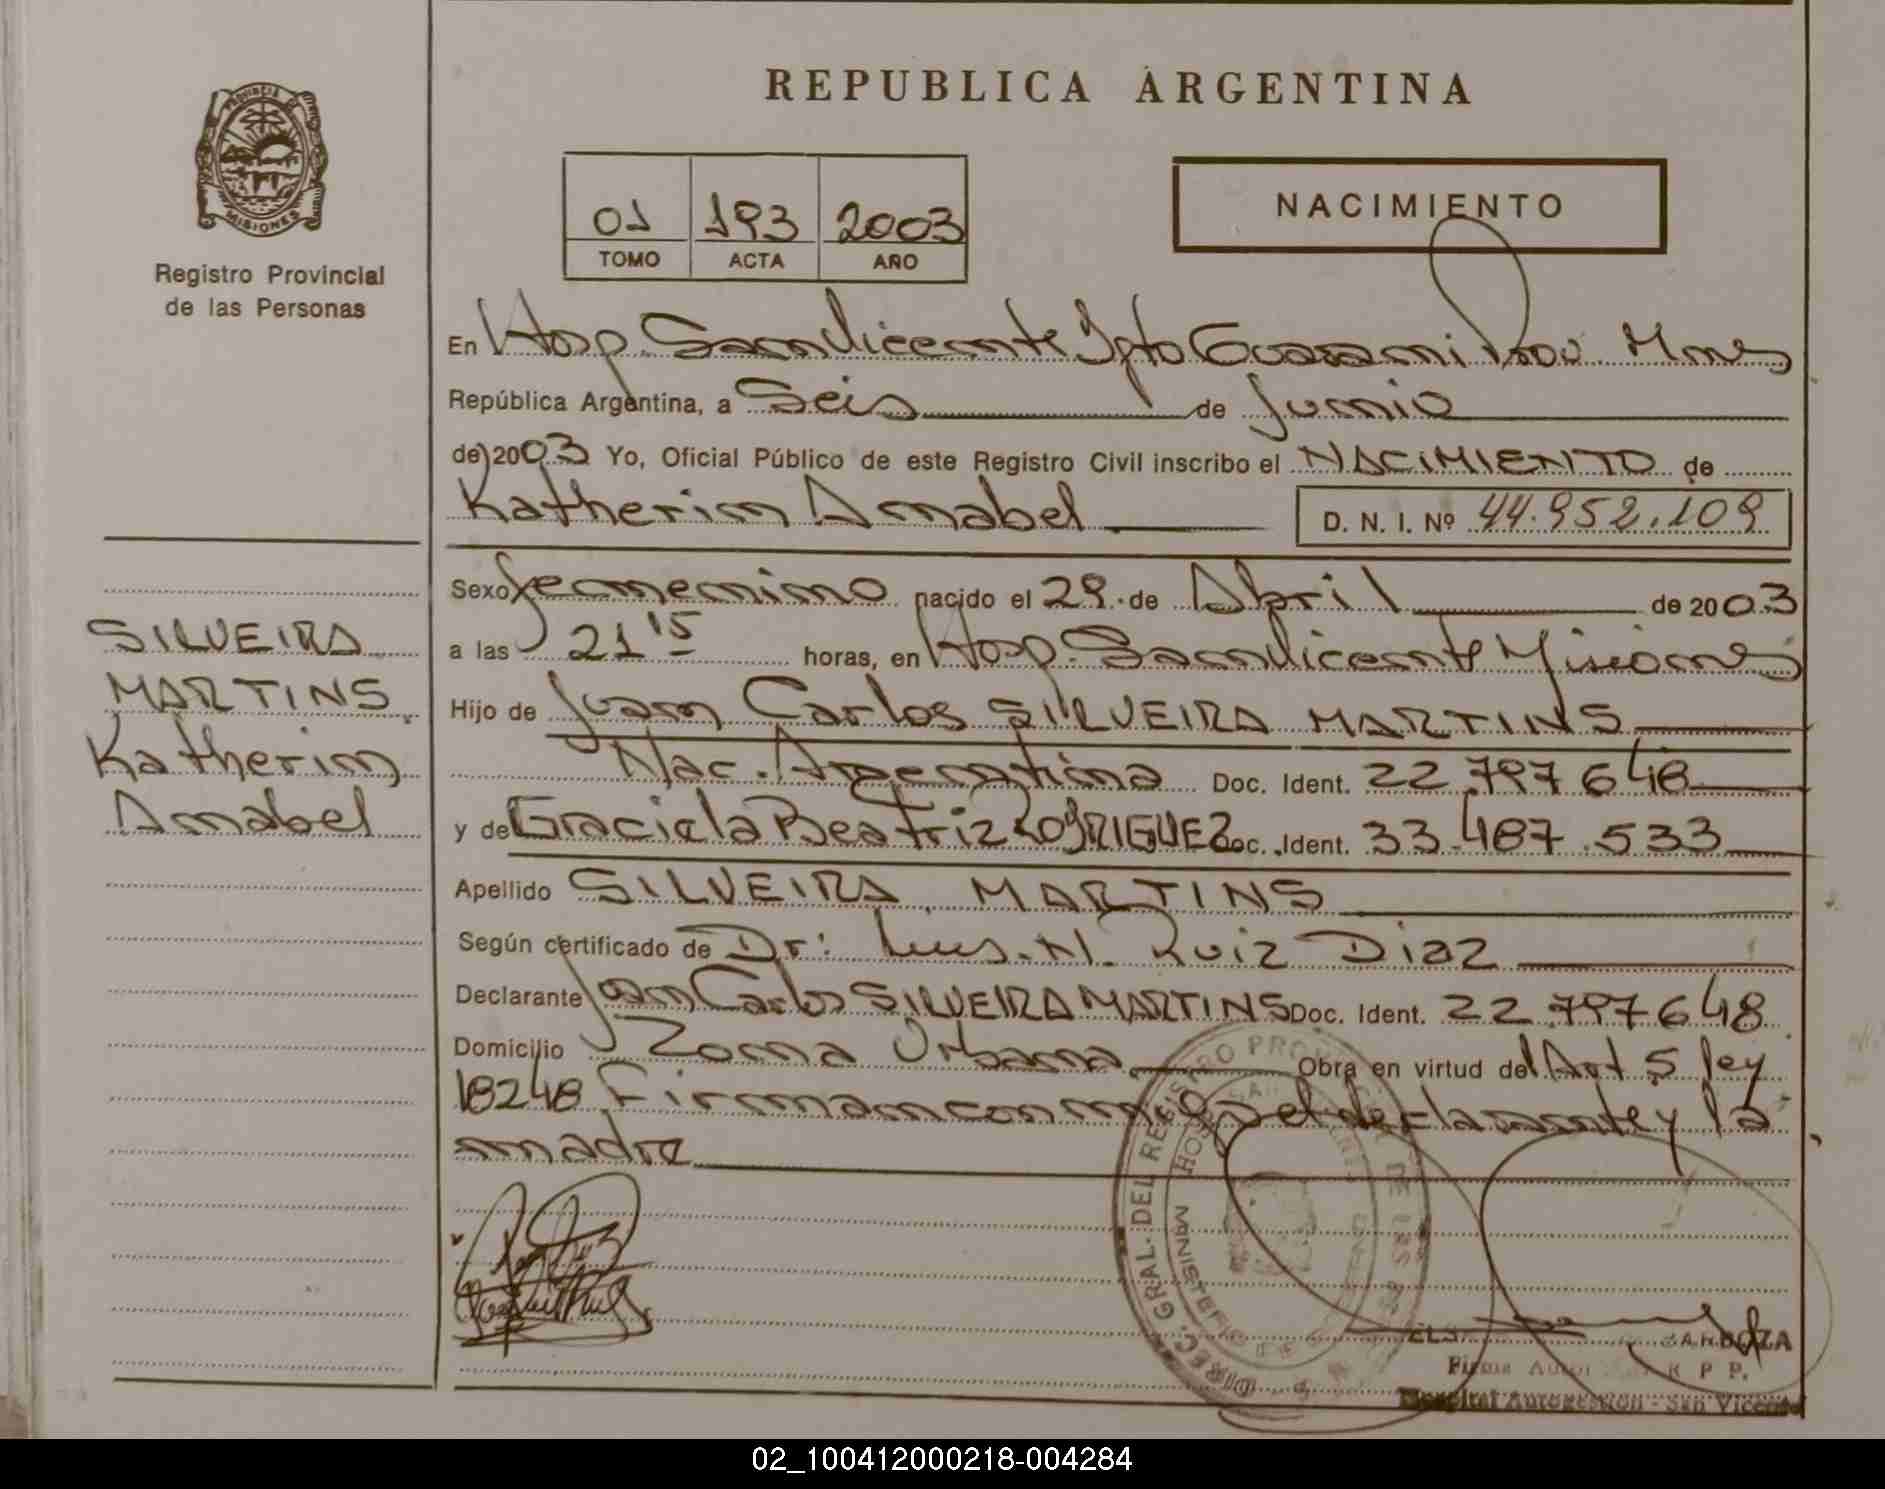 PROVINCIA DE
MISIONES
Registro Provincial
de las Personas
SILVEIRA
MARTINS
Katherin
Anabel
REPUBLICA ARGENTINA
01 193 2003
TOMO ACTA AÑO
NACIMIENTO
En Hosp. San Vicente Dpto Guarani Prov. Mnes
República Argentina, a Seis de Junio
de 2003 Yo, Oficial Público de este Registro Civil inscribo el NACIMIENTO de
Katherin Anabel D. N. I. Nº 44.952.109
Sexo femenino nacido el 29 de Abril de 2003
a las 21 15 horas, en Hosp. San Vicente Misiones
Hijo de Juan Carlos SILVEIRA MARTINS
Nac. Argentina Doc. Ident. 22.797648
y de Graciela Beatriz RODRIGUEZ Doc. Ident. 33.487.533
Apellido SILVEIRA MARTINS
Según certificado de Dr: Luis. N. Ruiz Diaz
Declarante Juan Carlos SILVEIRA MARTINS Doc. Ident. 22.797648
Domicilio Zona Urbana Obra en virtud del Art 5 ley
18248 Firman conmigo el declarante y la
madre
DIREC. GRAL. DEL REGISTRO PROV. DE LAS
MINISTERIO DE
BARBOZA
Firma Autor R P P.
Hospital Autogestion - San Vicente
02_100412000218-004284